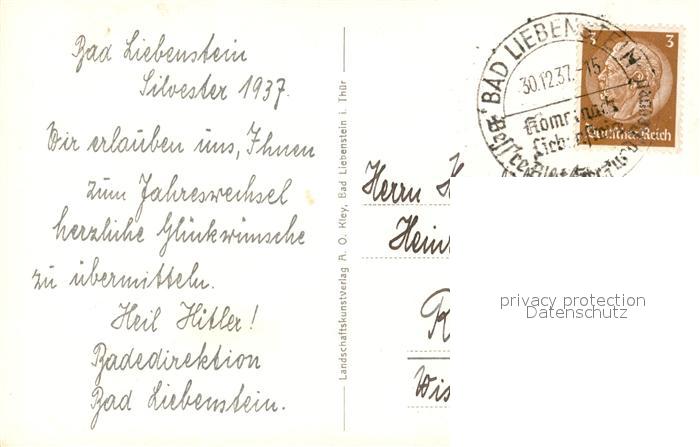 Bad Liebenstein
Silvester 1937.
Wir erlauben uns, Ihnen
zum Jahreswechsel
herzliche Glückwünsche
zu übermitteln.
Heil Hitler!
Badedirektion
Bad Liebenstein.
Landschaftskunstverlag A. O. Kley, Bad Liebenstein i. Thür
BAD LIEBENSTEIN
30.12.37.-15
Komm nach
3 3
Deutsches Reich
Herrn
Hein
privacy protection
Datenschutz